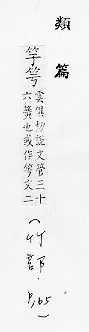 類篇
竽䇢
雲俱切說文管三十
六簧也或作䇢文二
(竹部.P,65)